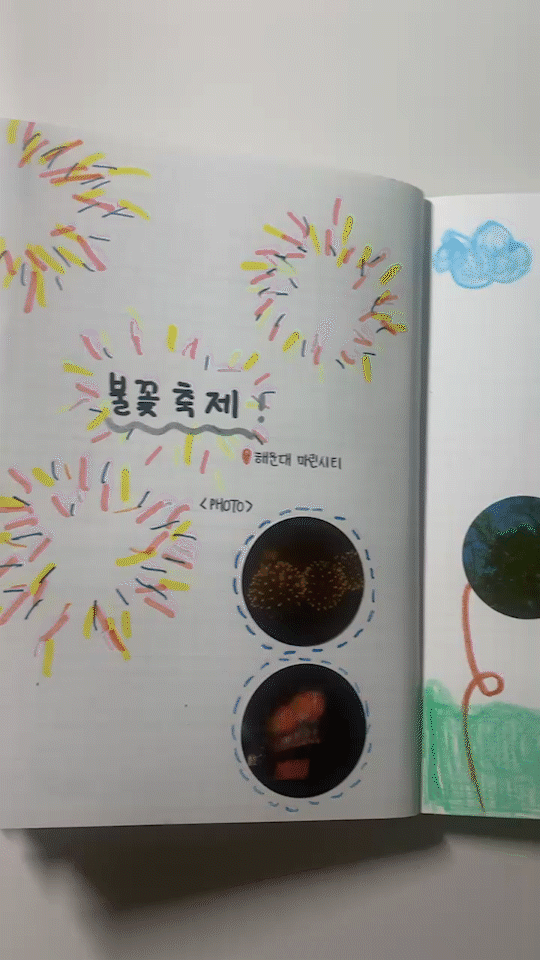 불꽃 축제!
해운대 마린시티
<PHOTO>